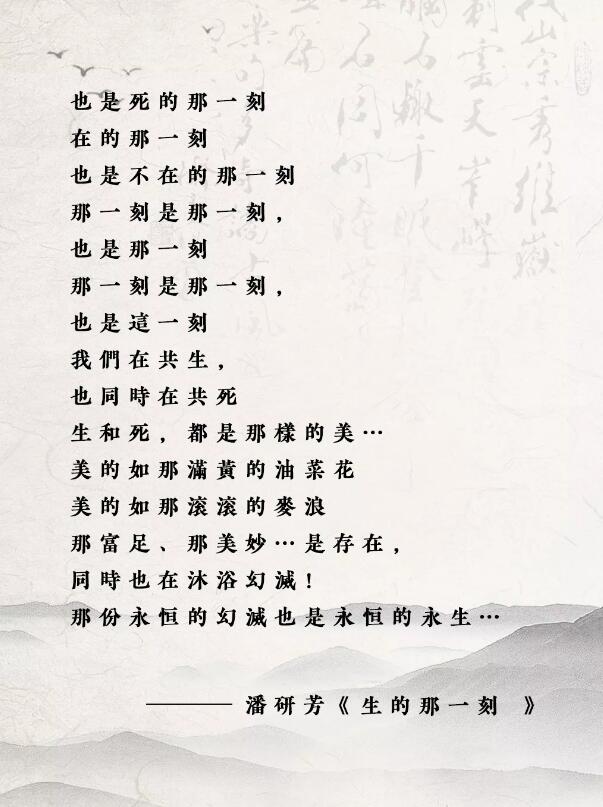 也是死的那一刻
在的那一刻
也是不在的那一刻
那一刻是那一刻，
也是那一刻
那一刻是那一刻，
也是這一刻
我們在共生，
也同時在共死
生和死，都是那樣的美…
美的如那滿黃的油菜花
美的如那滚滚的麥浪
那富足、那美妙…是存在，
同時也在沐浴幻滅！
那份永恒的幻滅也是永恒的永生…
——— 潘研芳《生的那一刻 》